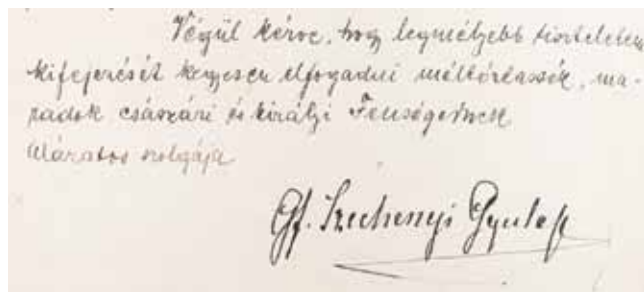 Végül kérve, hogy legmélyebb tiszteletem
kifejezését kegyesen elfogadni méltóztassék, ma-
radok császári és királyi Fenségednek
alázatos szolgája
Gf. Szechenyi Gyula